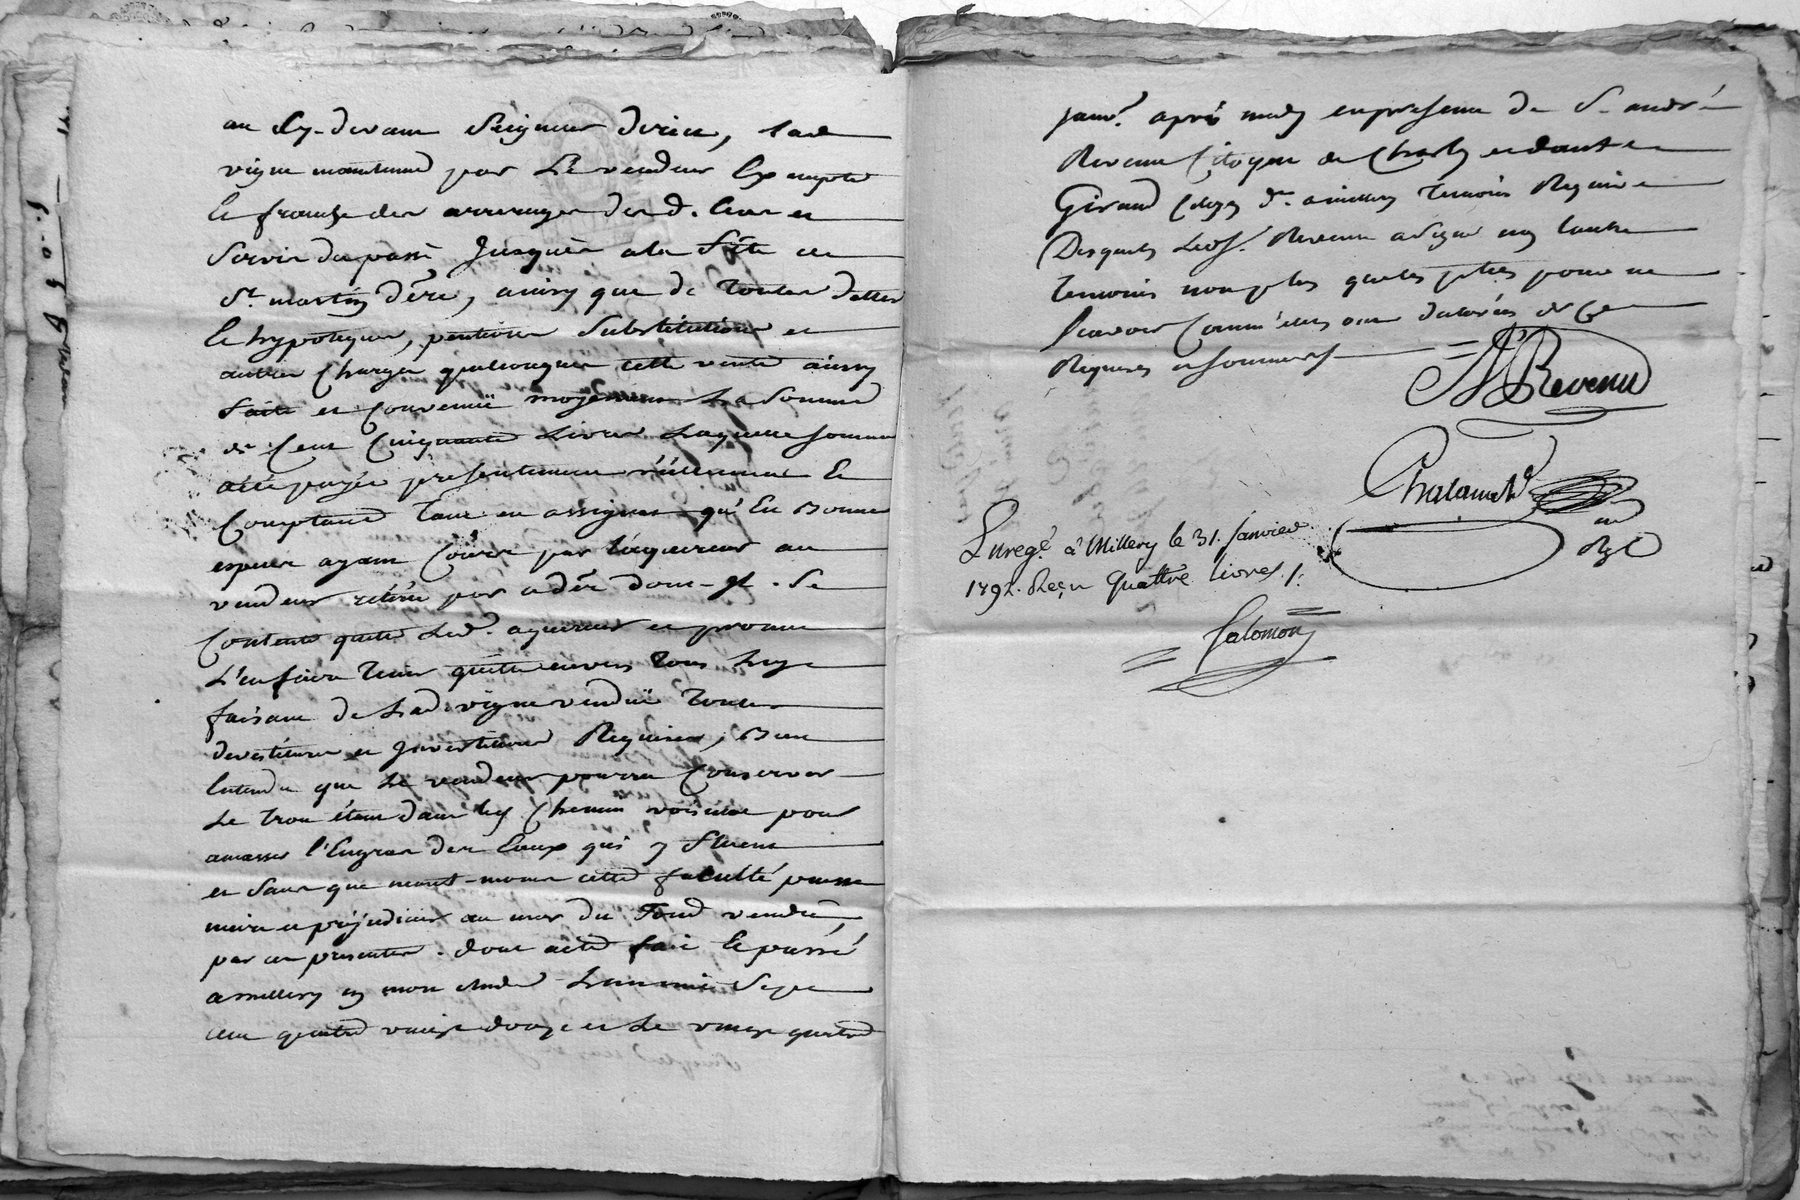 au Cy-devant Seigneur direct, lad
vigne maintenue par Le vendeur Exempte
& franche des arrerages desd. Cens et
Servis du passé Jusques a la Fête de
St martin d'ère, ainsy que de Toutes dettes
& hypoteques, pentions Substitutions et
autres Charges quelconques cette vente ainsy
faite et Convenuë moyennant La Somme
de Cent Cinquante Livres Laquelle somme
a été payée presentement réellement &
Comptant Tant en assignats qu'En Bonnes
especes ayant Cours par l'aquereur au
vendeur retiré par
Contente quitte Led. aquereur et promet
L'en faire Tenir quitte envers Tous
faisant de Lad. vigne venduë Toutes
devestitures et Investitures Requises, Bien
Entendu que Le vendeur pourra Conserver
Le trou étant dans Les Chemin voisine pour
amasser l'Engrais des Eaux qui y fluent
et Sans que neant-moins cette faculté puisse
nuire et prejudicier au mur du Fond vendu,
par ces presentes. dont acte fait & passé
a millery en mon étude L'an mil Sept
cent quatre vingt douze et Le vingt quatre
janvr. après midy en presence de Sr andré
Revenu Citoyen de Charly et
Giraud Citoyen de amillery Temoins Requis
Desquels Led Sr. Revenu a signé non l'autre
Temoins non plus que les parties pour ne
Scavoir Comm'elles ont déclarées de Ce
Requises et sommees
A Revenu
Chalamel
Enregé. à Millery le 31. Janvier
1792. Reçu Quattre livres
Salomon